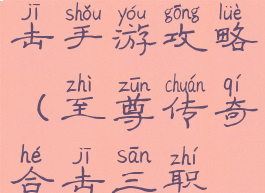 jī shǒu yóu gōng lüè
击手游攻略
zhì zūn chuán qí
（至尊传奇
hé jī sān zhí
合击三职